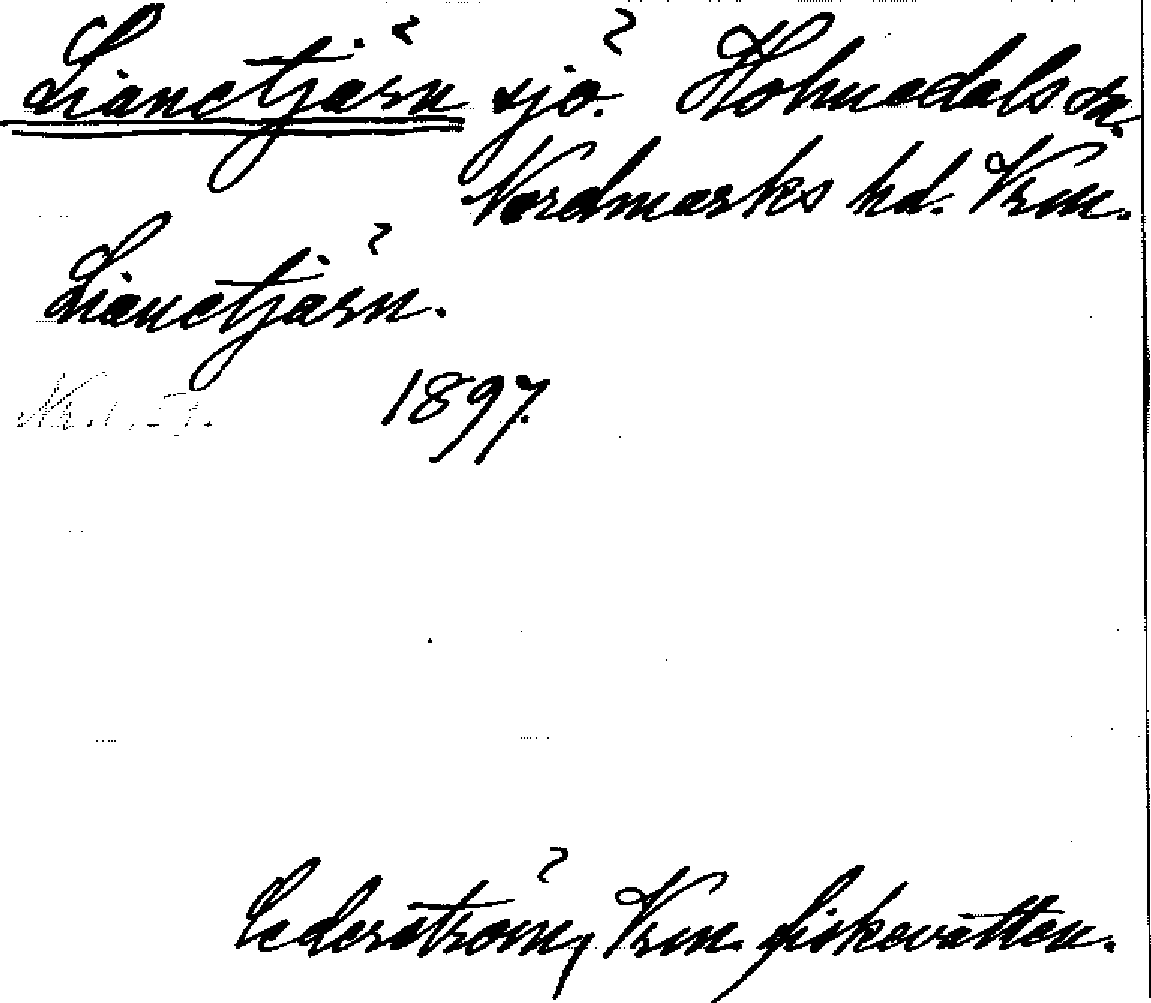 Lianetjärn sjö. Holmedals sn.
Nordmarks hd. Vrm.
Lianetjärn.
1897.
Cederström, Vrm. fiskevatten.